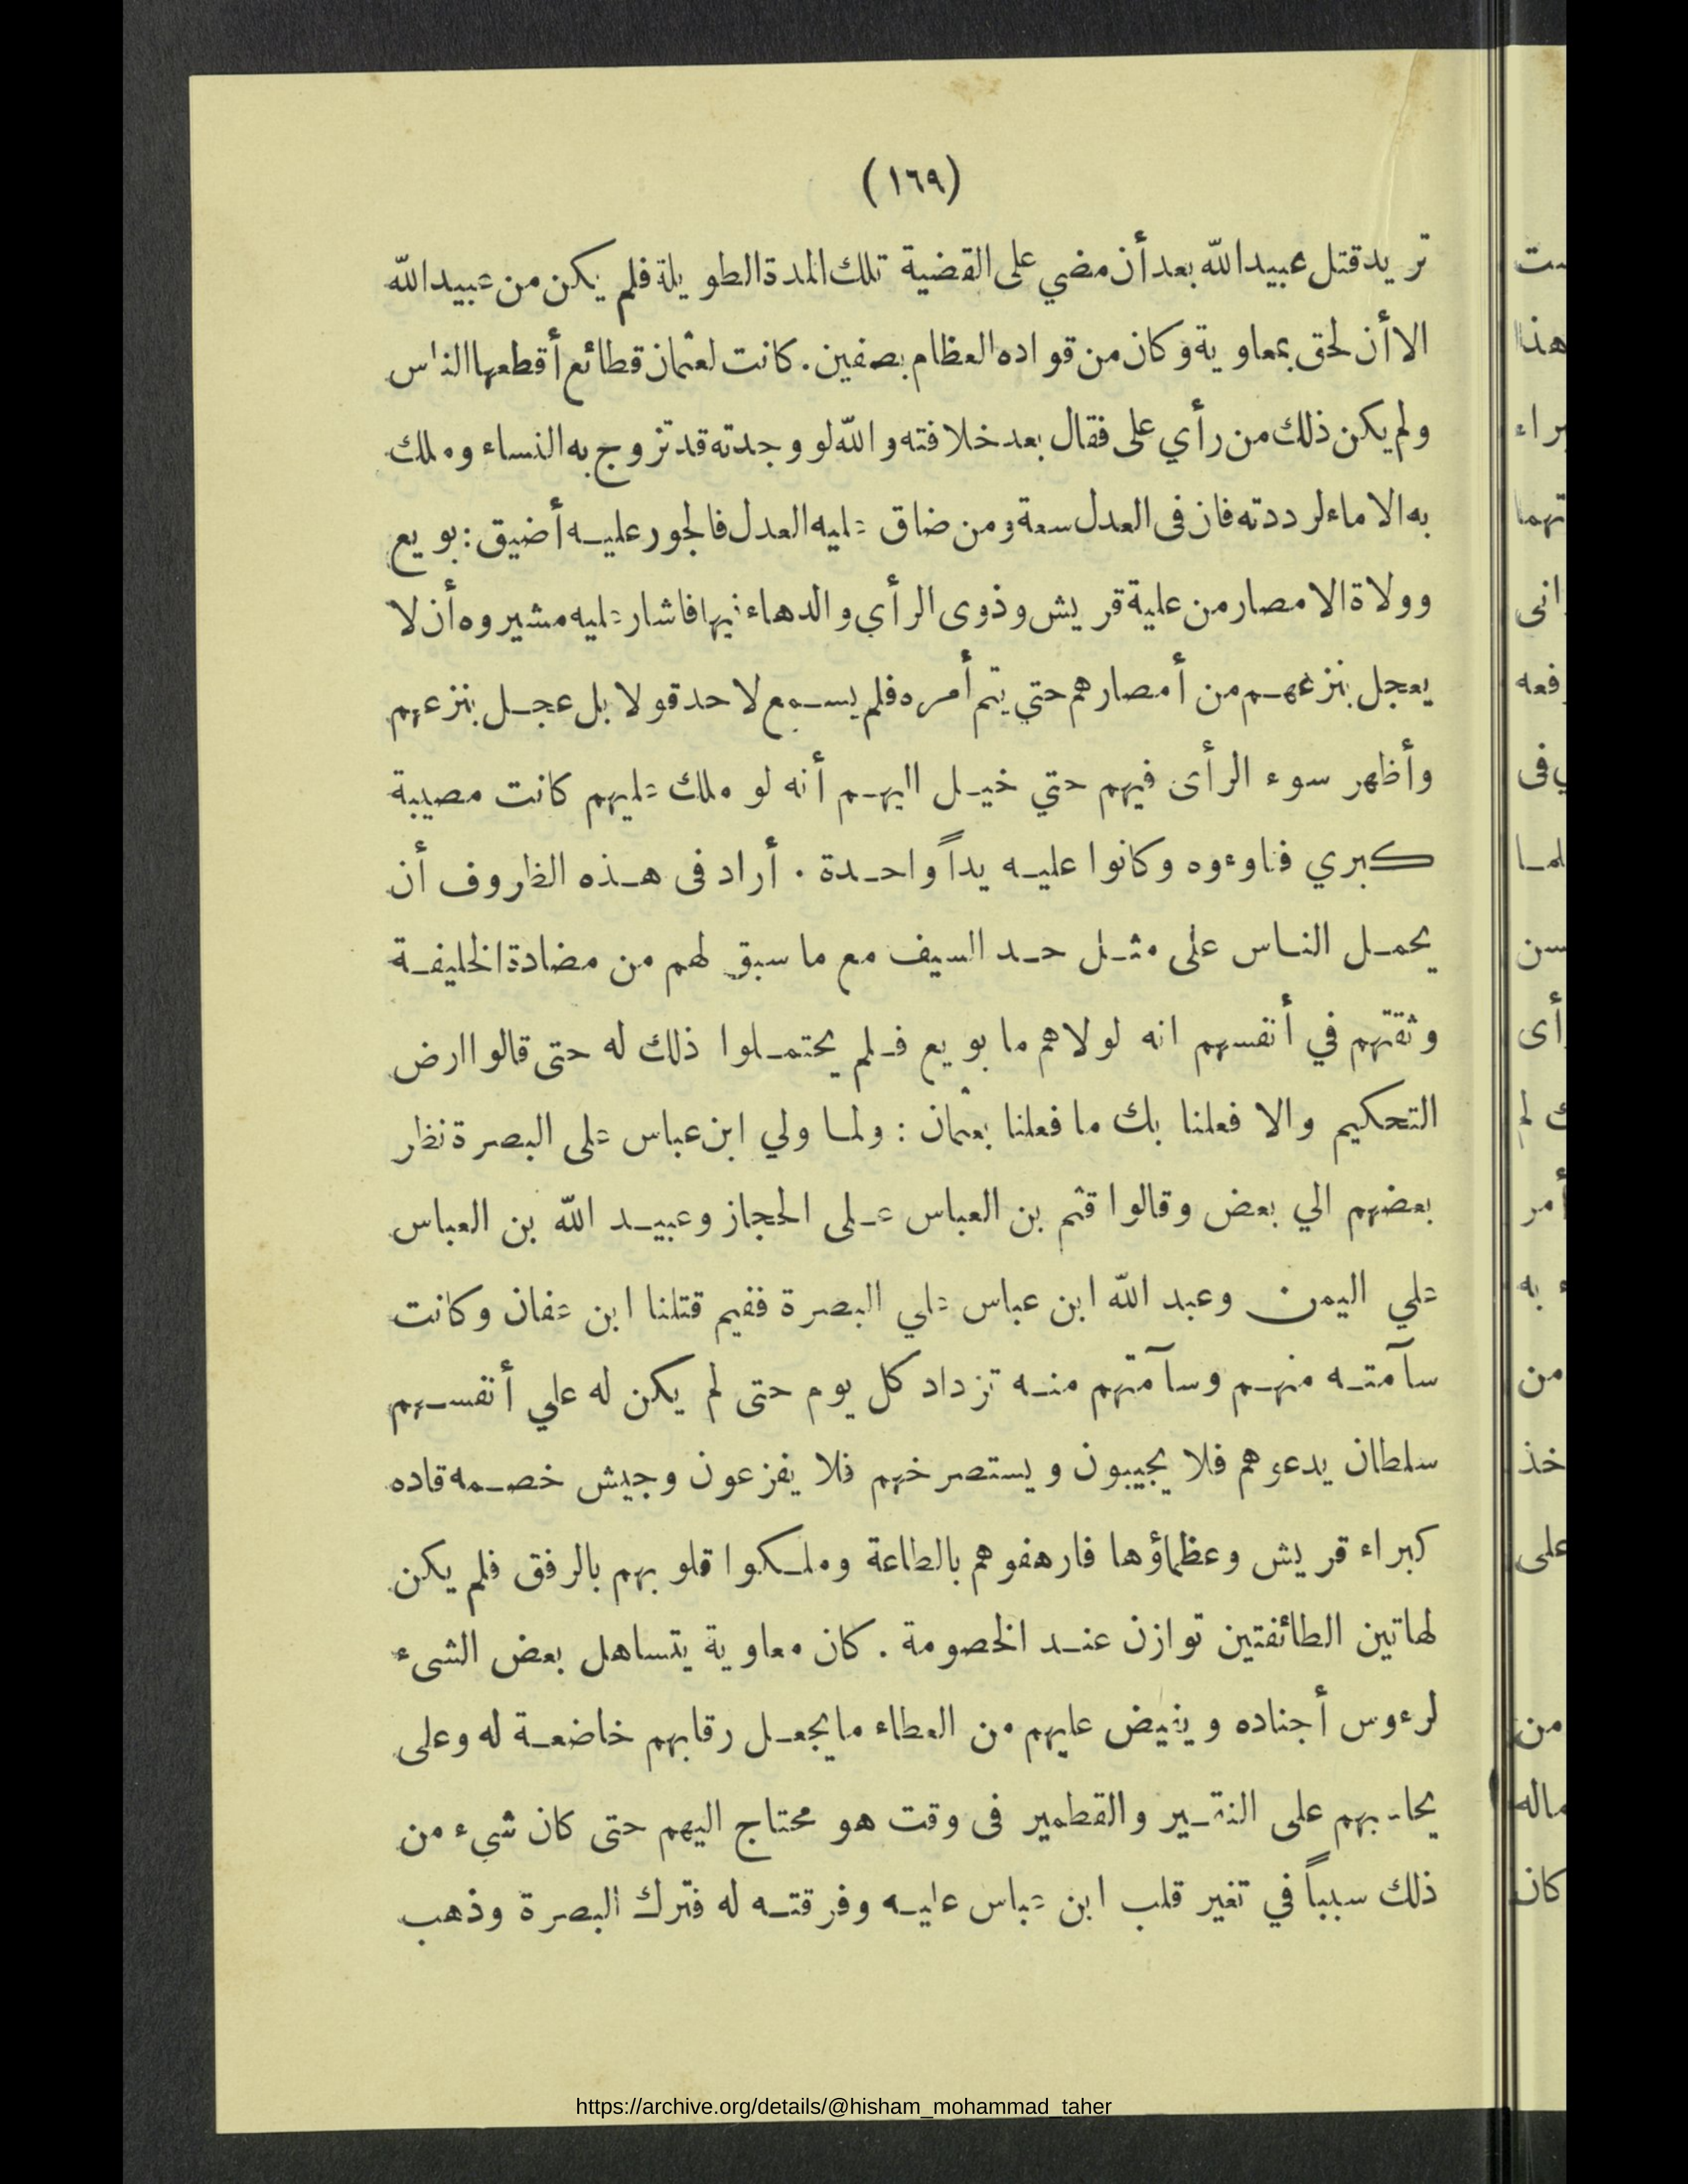 (١٦٩)
تريد قتل عبيدالله بعد أن مضي على القضية تلك المدة الطويلة فلم يكن من عبيدالله
الا أن لحق بمعاوية وكان من قواده العظام بصفين. كانت لعثمان قطائع أقطعها الناس
ولم يكن ذلك من رأي على فقال بعد خلافته والله لو وجدته قد تزوج به النساء وملك
به الاماء لرددته فان فى العدل سعة ومن ضاق عليه العدل فالجور عليه أضيق : بويع
وولاة الامصار من علية قريش وذوى الرأي والدهاء فيها فاشار عليه مشيروه أن لا
يعجل بنزعهم من أمصارهم حتي يتم أمره فلم يسمع لاحد قولا بل عجل بنزعهم
وأظهر سوء الرأى فيهم حتي خيل اليهم أنه لو ملك عليهم كانت مصيبة
كبري فناوءوه وكانوا عليه يداً واحدة . أراد فى هذه الظروف أن
يحمل الناس على مثل حد السيف مع ما سبق لهم من مضادة الخليفة
وثقتهم في أنفسهم انه لولاهم ما بويع فلم يحتملوا ذلك له حتى قالوا ارض
التحكيم والا فعلنا بك ما فعلنا بعثمان : ولما ولي ابن عباس على البصرة نظر
بعضهم الي بعض وقالوا قثم بن العباس على الحجاز وعبيد الله بن العباس
علي اليمن وعبد الله ابن عباس علي البصرة ففيم قتلنا ابن عفان وكانت
سآمته منهم وسآمتهم منه تزداد كل يوم حتى لم يكن له علي أنفسهم
سلطان يدعوهم فلا يجيبون ويستصرخهم فلا يفزعون وجيش خصمه قاده
كبراء قريش وعظماؤها فارهفوهم بالطاعة وملكوا قلوبهم بالرفق فلم يكن
لهاتين الطائفتين توازن عند الخصومة . كان معاوية يتساهل بعض الشىء
لرءوس أجناده ويفيض عليهم من العطاء ما يجعل رقابهم خاضعة له وعلى
يحاسبهم على النقير والقطمير فى وقت هو محتاج اليهم حتى كان شيء من
ذلك سبباً في تغير قلب ابن عباس عليه وفرقته له فترك البصرة وذهب
https://archive.org/details/@hisham_mohammad_taher